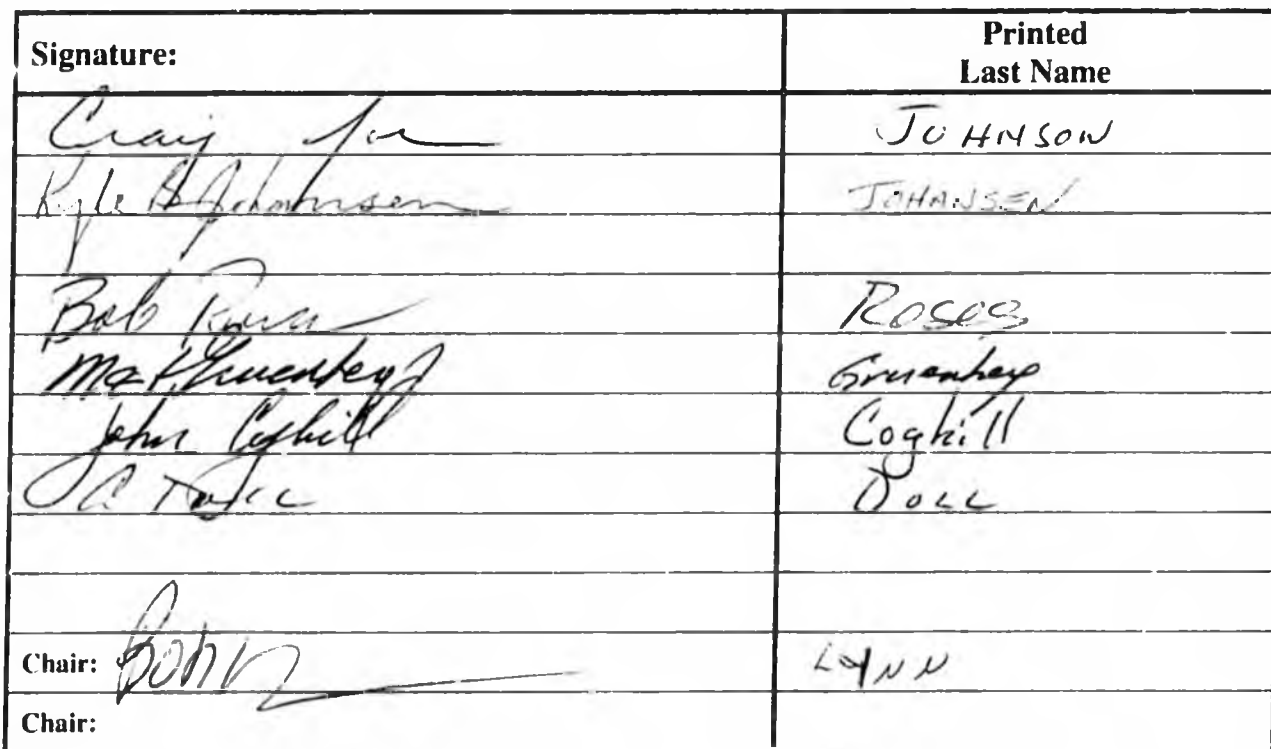 Signature: Printed
Last Name
Craig JOHNSON
Kyle B Johansen JOHANSEN
Bob Roses ROSES
Max Gruenberg Gruenberg
John Coghill Coghill
A Doll DOLL
Chair: Bob LYNN
Chair: